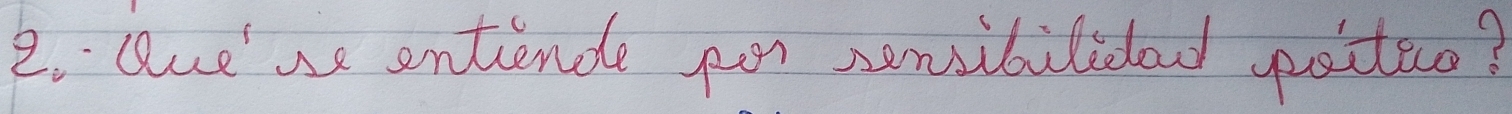 2.- Qué se entiende por sensibilidad poética?